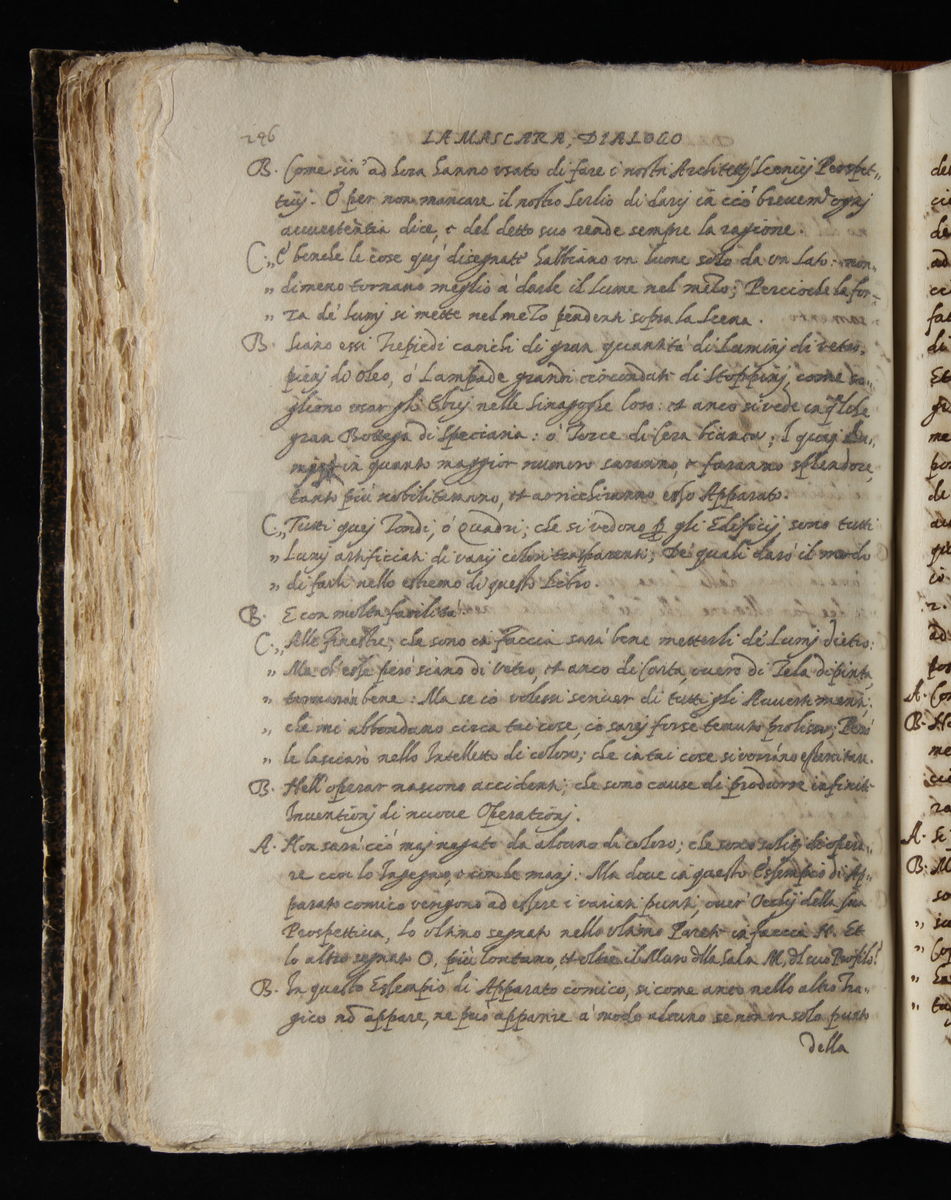 246
LA MASCARA, DIALOGO
B. Come sin' ad hora hanno usato di fare i nostri Architetti Scenici Prospet-
tivij. O per non mancare il nostro Serlio di darci in ciò brevem.te ogni
auuertentia dice, e del detto suo rende sempre la ragione.
C. „ E benche le cose qui disegnate habbiano un lume solo da un lato: non-
„ dimeno tornano meglio a darle il lume nel mezo; Percioche la for-
„ za de' lumj si mette nel mezo pendenti sopra la Scena.
B. Siano essi Trepiedi carichi di gran quantità di Luminj di vetro,
pienj di Oleo, ò Lampade grandi circondati di Stoppinj, come so-
gliono usar gli Ebrej nelle Sinagoghe loro: et anco si vede in q.lche
gran Bottega di Speciaria: ò Torce di Cera bianca; I quaj Lu-
in quanto maggior numero saranno, e faranno splendore,
tanto più nobiliteranno, et arrichiranno esso Apparato.
C. „ Tutti quej Tondi, ò Quadri; che si vedono p gli Edificij sono tutti
„ Lumj artificiati di varij colori trasparenti; De' quali darò il modo
„ di farli nello estremo di questo Libro.
B. E con molta facilità.
C. „ Alle finestre; che sono in faccia sarà bene metterli de' Lumj dietro:
„ Ma ch'esse però siano di vetro, et anco di Carta, ouero di Tela dipinta
„ torneranno bene: Ma se io volessi scriver di tutti gli Auuertimenti.
„ che mi abbondano circa tai cose, io sarej forse tenuto prolisso; Però
„ le lasciarò nello Intelletto di coloro; che in tai cose si vorrano essercitare.
B. Nell' operar nascono accidenti; che sono cause di produrre infinite
Inuentionj di nuoue Operationj.
A. Non sarà ciò maj negato da alcuno di coloro; che sono soliti di opera-
re con lo Ingegno, e con le manj. Ma doue in questo Essempio di Ap-
parato comico vengono ad essere i variati punti, ouer Occhij della sua
Prospettiua, lo ultimo segnato nello ultimo Parete in faccia H. Et
lo altro segnato O, più lontano, et oltre il Muro dlla Sala M, dl suo Profilo?
B. In questo Essempio di Apparato comico, si come anco nello altro Tra-
gico nō appare, ne può apparire a modo alcuno se non un solo punto
della